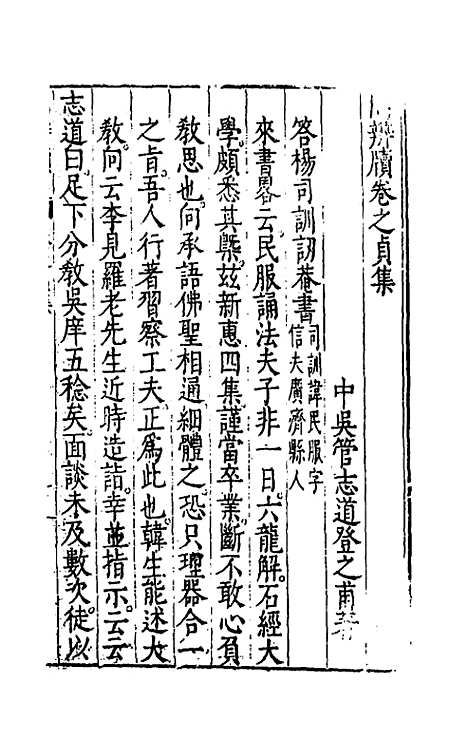 辨牘卷之貞集
中吳管志道登之甫著
答楊司訓訒菴書司訓諱民服字信夫廣濟縣人
來書畧云民服誦法夫子非一日六龍解石經大
學頗悉其槩茲新惠四集謹當卒業斷不敢心負
教思也向承語佛聖相通細體之恐只理器合一
之旨吾人行著習察工夫正為此也韓生能述大
教向云李見羅老先生近時造詣幸並指示云云
志道曰足下分教吳庠五稔矣面談未及數次徒以